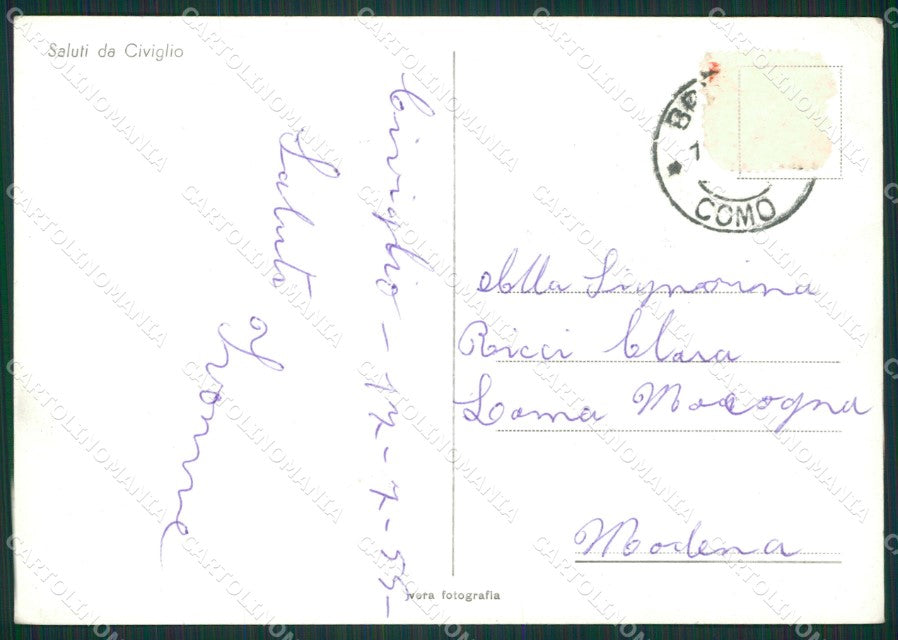 Saluti da Civiglio
Civiglio - 17-7-55-
Saluti
Yvonne
COMO
Alla Signorina
Ricci Clara
Lama Mocogna
Modena
vera fotografia
CARTOLINOMANIA